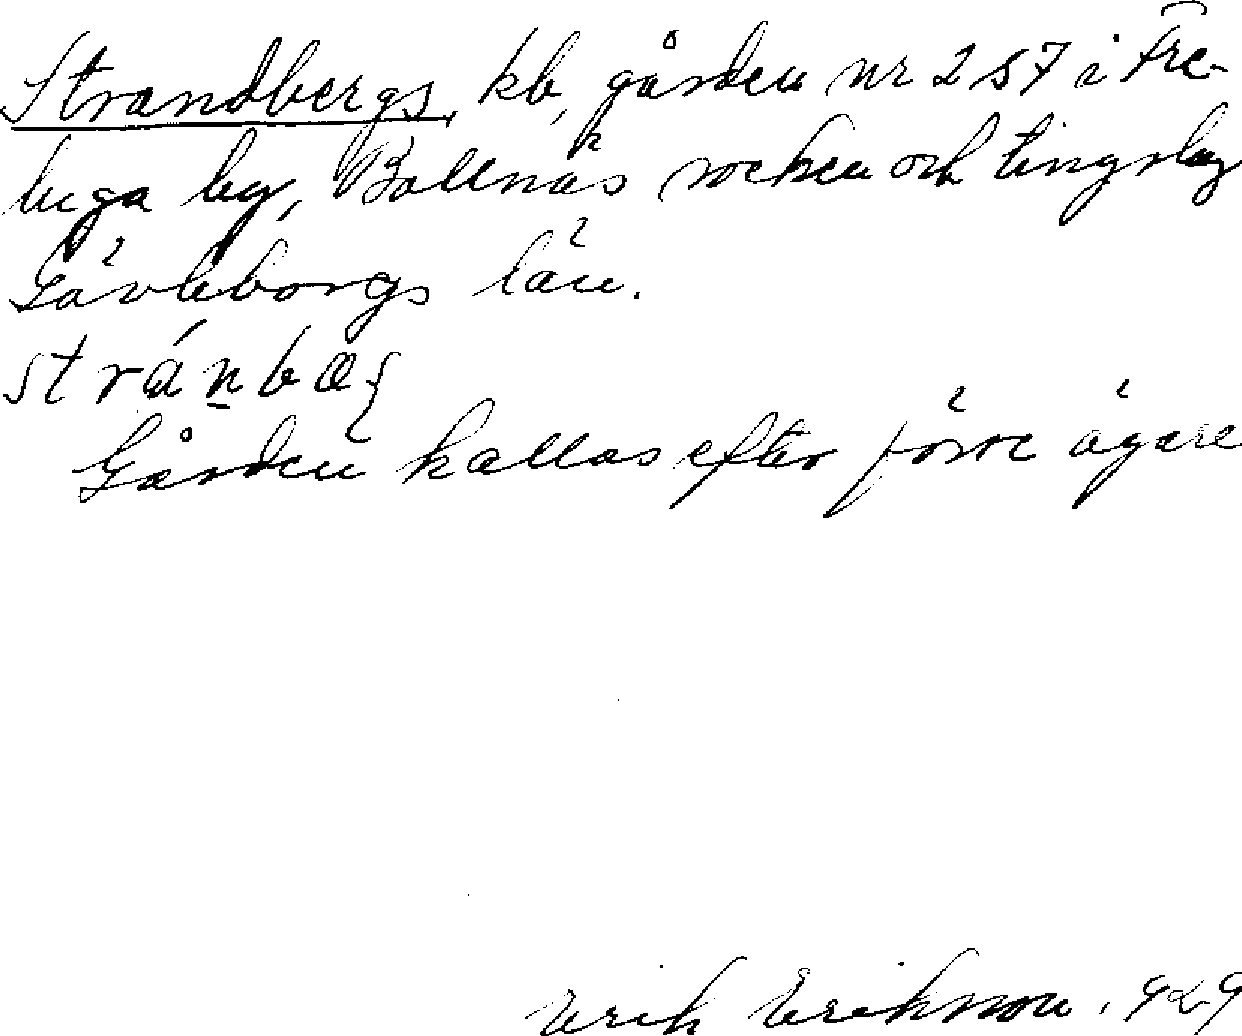 Strandbergs, kb, gården nr 2 s7 i Tre-
buga by, Bollnäs socken och tingslag
Gävleborgs län.
stránbæ
Gården kallas efter förre ägare
Erik Eriksson. 929